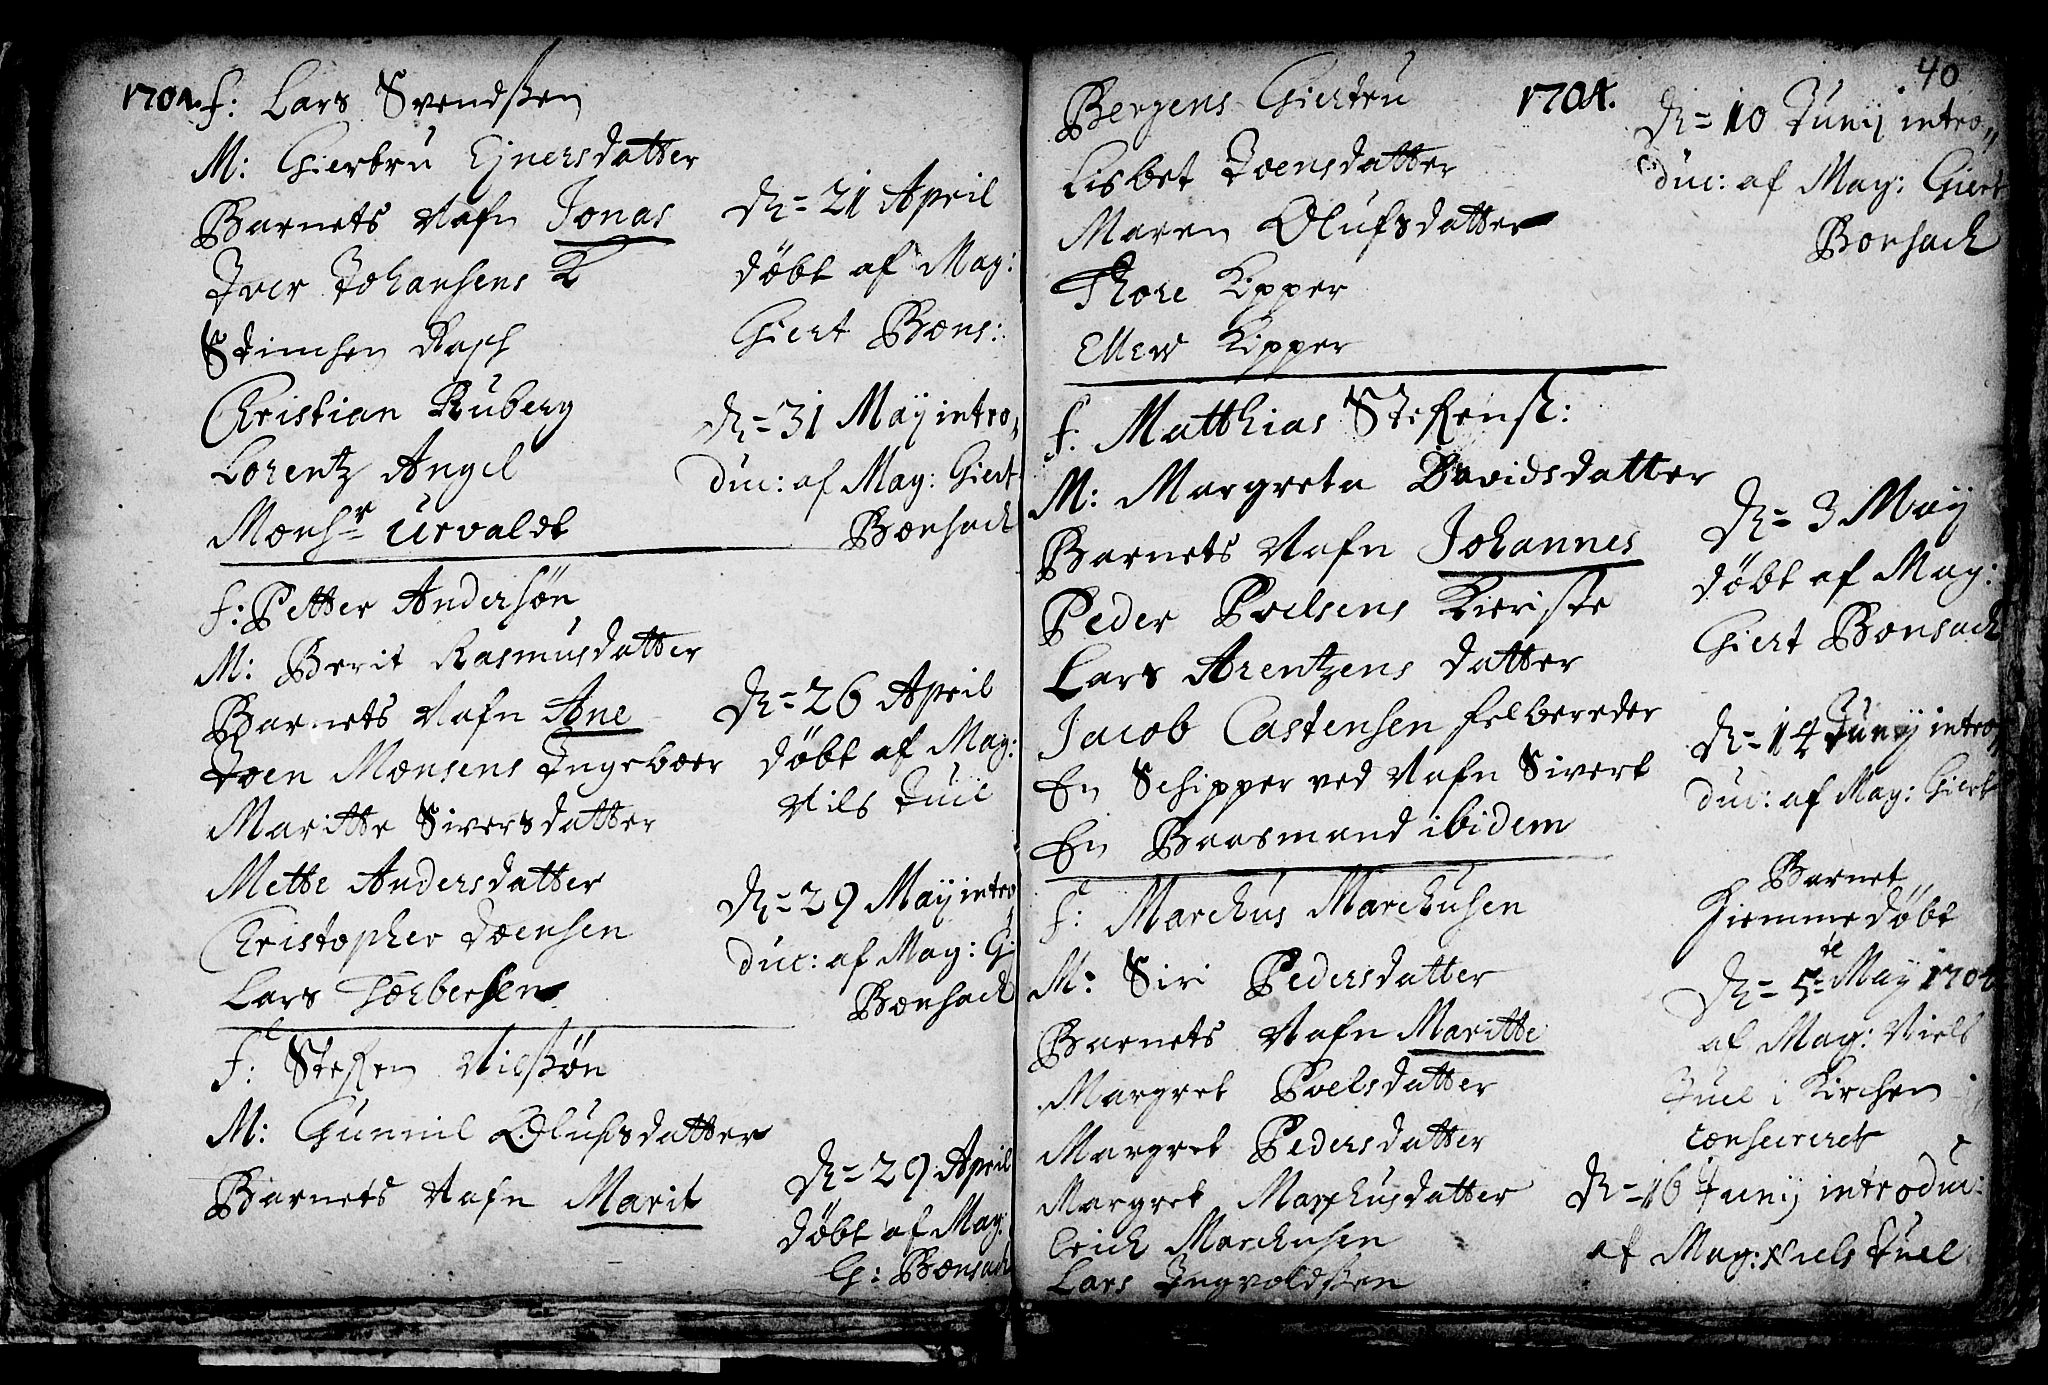 1704. F: Lars Svendßen
M: Giertru Ejnersdatter
Barnets Nafn Jonas
Iver Johansens K
Stinchen Rasch
Christian Ruberg
Lorentz Angel
Monsr Urvaldt
D= 21 April
døbt af Mag:
Giert Bons:
D= 31 Maÿ intro,,
duc: af Mag: Giert
Bonsach
F: Petter Andersøn
M: Berit Rasmusdatter
Barnets Nafn Ane
Joen Monsens Ingeboer
Maritte Siversdatter
Mette Andersdatter
Christopher Joensen
Lars Torbersen
D= 26 April
døbt af Mag:
Nils Juil
D= 29 Maÿ intro
duc: af Mag: G:
Bonsach
F: Steffen Nilßøn
M: Gunnil Olufsdatter
Barnets Nafn Marit
D= 29 April
døbt af Mag:
G: Bonsach
40
1704.
Bergens Giertru
Lisbet Joensdatter
Maren Olufsdatter
Thore Kipper
Ellew Kipper
D= 10 Junij intro,,
duc: af Mag: Giert
Bonsach
F: Matthias Steffensß:
M: Margreta Davidsdatter
Barnets Nafn Johannes
Peder Poelsens Kieriste
Lars Arentzens datter
Jacob Castensen felbereder
En Schipper ved Nafn Sivert
En Baasmand ibidem
D= 3 Maÿ
døbt af Mag:
Giert Bonsach
D= 14 Junij intro,,
duc: af Mag: Giert
F: Marchus Marchusen
M: Siri Pedersdatter
Barnets Nafn Maritte
Margret Poelsdatter
Margret Pedersdatter
Margret Marchusdatter
Erich Marchusen
Lars Ingvoldßen
Barnet
Hiemmedøbt
D= 5te Maÿ 1704
af Mag: Niels
Juel i Kirchen
consecreret
D= 16 Junij introduc:
af Mag: Niels Juel